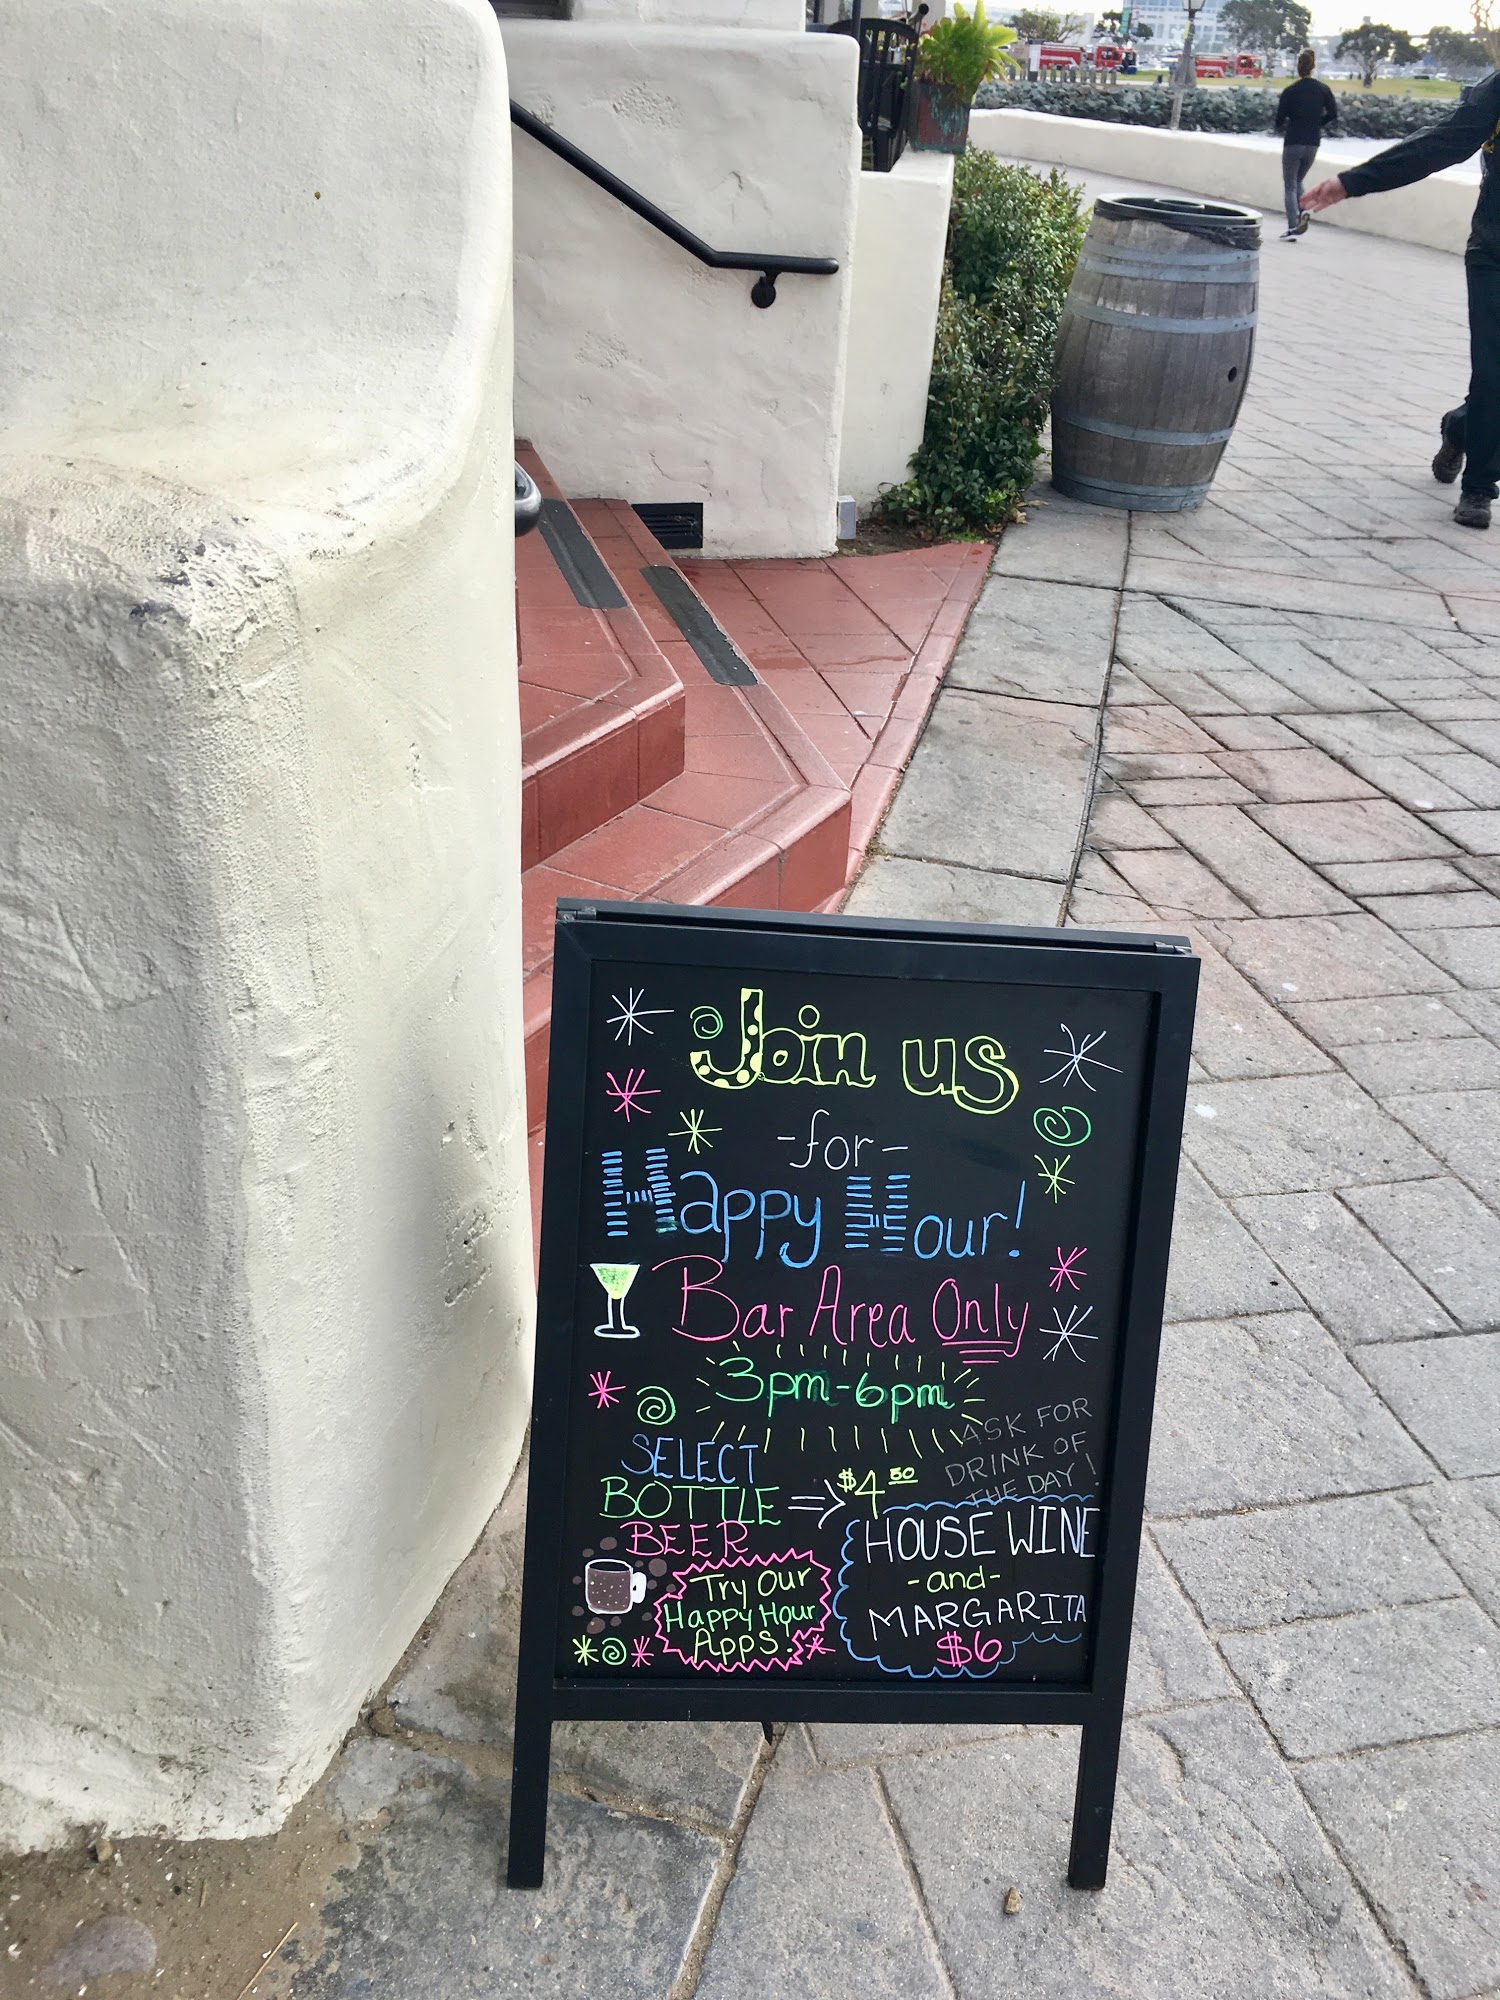 Join us
-for-
Happy Hour!
Bar Area Only
3pm-6pm
ASK FOR
DRINK OF
THE DAY!
SELECT
BOTTLE
BEER
⇒ $4 50
Try Our
Happy Hour
Apps.
HOUSE WINE
-and-
MARGARITA
$6